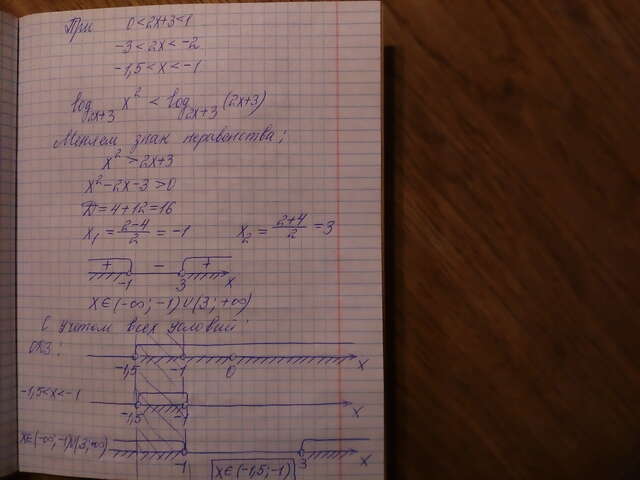 При 0<2x+3<1
-3<2x<-2
-1,5<x<-1
log₂ₓ₊₃ x² < log₂ₓ₊₃ (2x+3)
Меняем знак неравенства:
x² > 2x+3
x²-2x-3>0
D=4+12=16
x₁ = (2-4)/2 = -1 x₂ = (2+4)/2 = 3
+ - +
-1 3 x
x∈(-∞; -1)∪(3; +∞)
С учётом всех условий:
ОДЗ:
-1,5 -1 0 x
-1,5<x<-1
-1,5 -1 x
x∈(-∞,-1)∪(3;+∞)
-1 3 x
x∈(-1,5; -1)